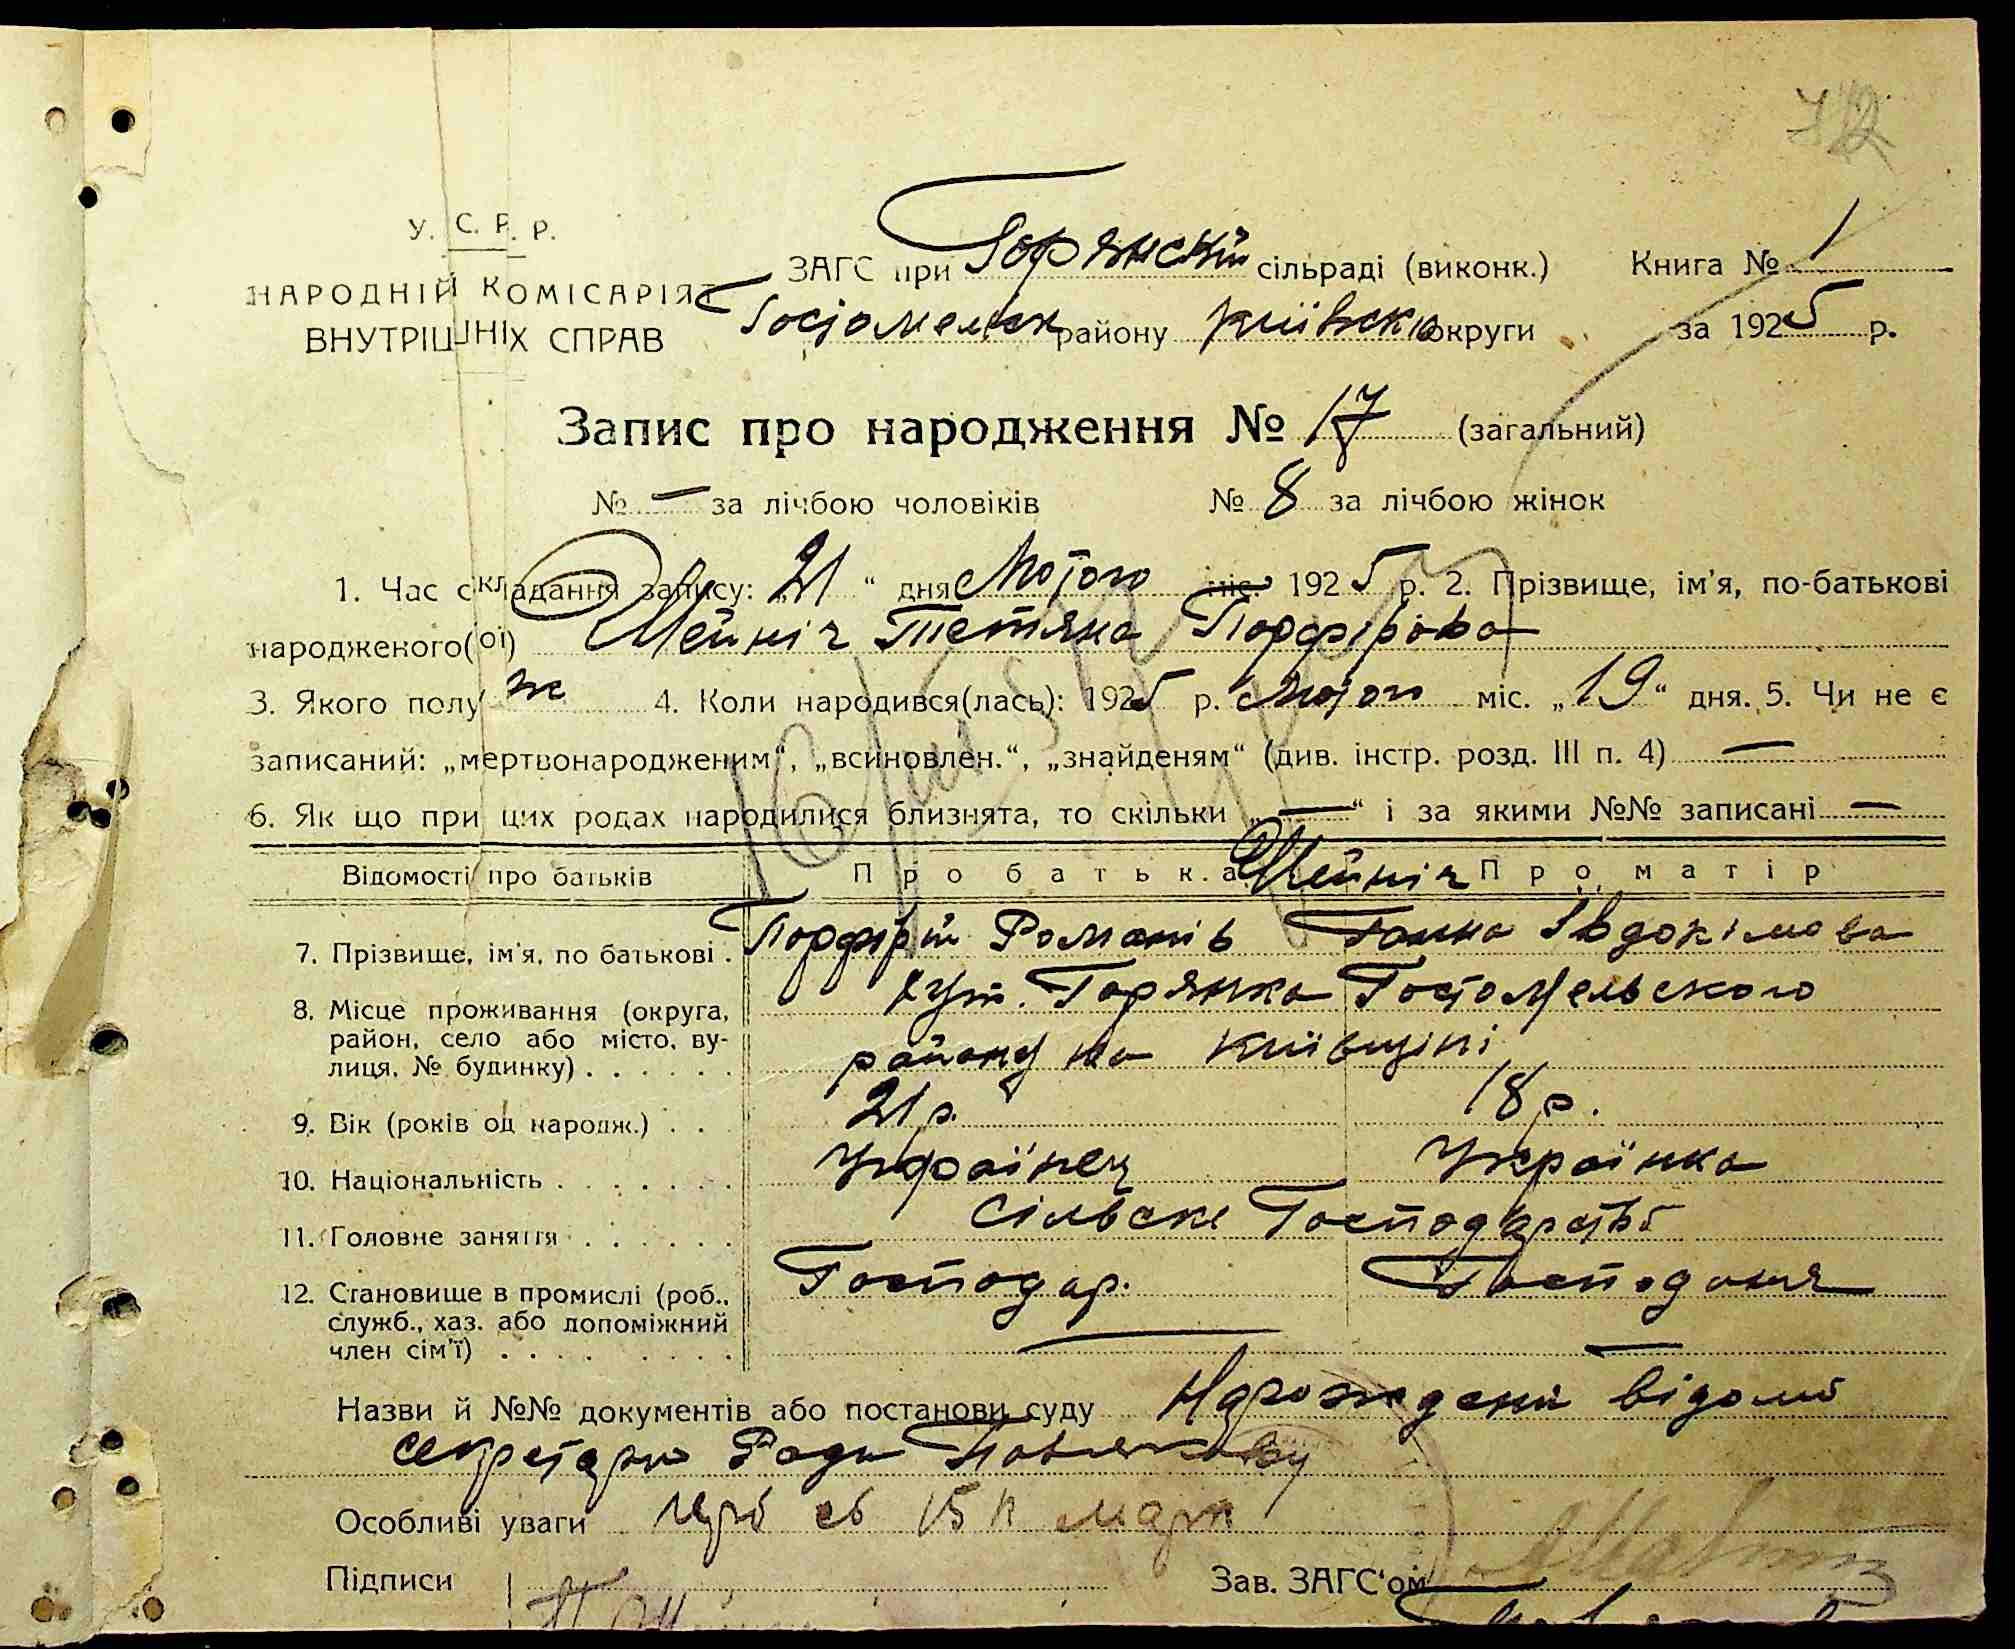 72
У. С. Р. Р.
НАРОДНІЙ КОМІСАРІЯТ
ВНУТРІШНІХ СПРАВ
ЗАГС при Горянскій сільраді (виконк.) Книга № 1
Гостомельск району Київської округи за 1925 р.
Запис про народження № 17 (загальний)
№ — за лічбою чоловіків № 8 за лічбою жінок
1. Час складання запису: „21“ дня Лютого міс. 1925 р. 2. Прізвище, ім'я, по-батькові
народженого(ої) Мейніч Тетяна Порфірова
3. Якого полу ж 4. Коли народився(лась): 1925 р. Лютого міс. „19“ дня. 5. Чи не є
записаний: „мертвонародженим“, „всиновлен.“, „знайденям“ (див. інстр. розд. III п. 4) —
6. Як що при цих родах народилися близнята, то скільки „—“ і за якими №№ записані —
Відомості про батьків Про батька Мейніч Про матір
7. Прізвище, ім'я, по батькові . Порфірій Романів Ганна Івдокімова
8. Місце проживання (округа, хут. Горянка Гостомельського
район, село або місто, ву-
лиця, № будинку) . . . . . . району на Київщині
9. Вік (років од народж.) . . . 21 р. 18 р.
10. Національність . . . . . . . Українец Українка
11. Головне заняття . . . . . . Сільске Господарство
12. Становище в промислі (роб., Господар. Господиня
служб., хаз. або допоміжний
член сім'ї) . . . . . . . . — —
Назви й №№ документів або постанови суду Народжения відомо
секретарю Ради
Особливі уваги 15 к марк
Підписи Зав. ЗАГС'ом